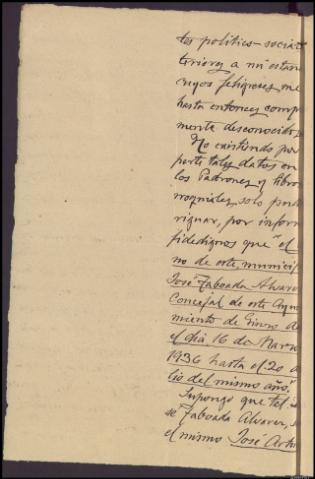 tos politico-social
teriores a mi estan
cuyos feligreses me
hasta entonces comp
mente desconocidos
No existiendo por
parte tales datos en
los Padrones y libro
rroquiales, solo pude
riguar, por inform
fidedignos que "el
no de este municip
José Taboada Alvare
Concejal de este Ayun
miento de Ginzo de
el dia 16 de Marzo
1936 hasta el 20 d
lio del mismo año."
Supongo que tal
sé Taboada Alvarez,
el mismo José Artu